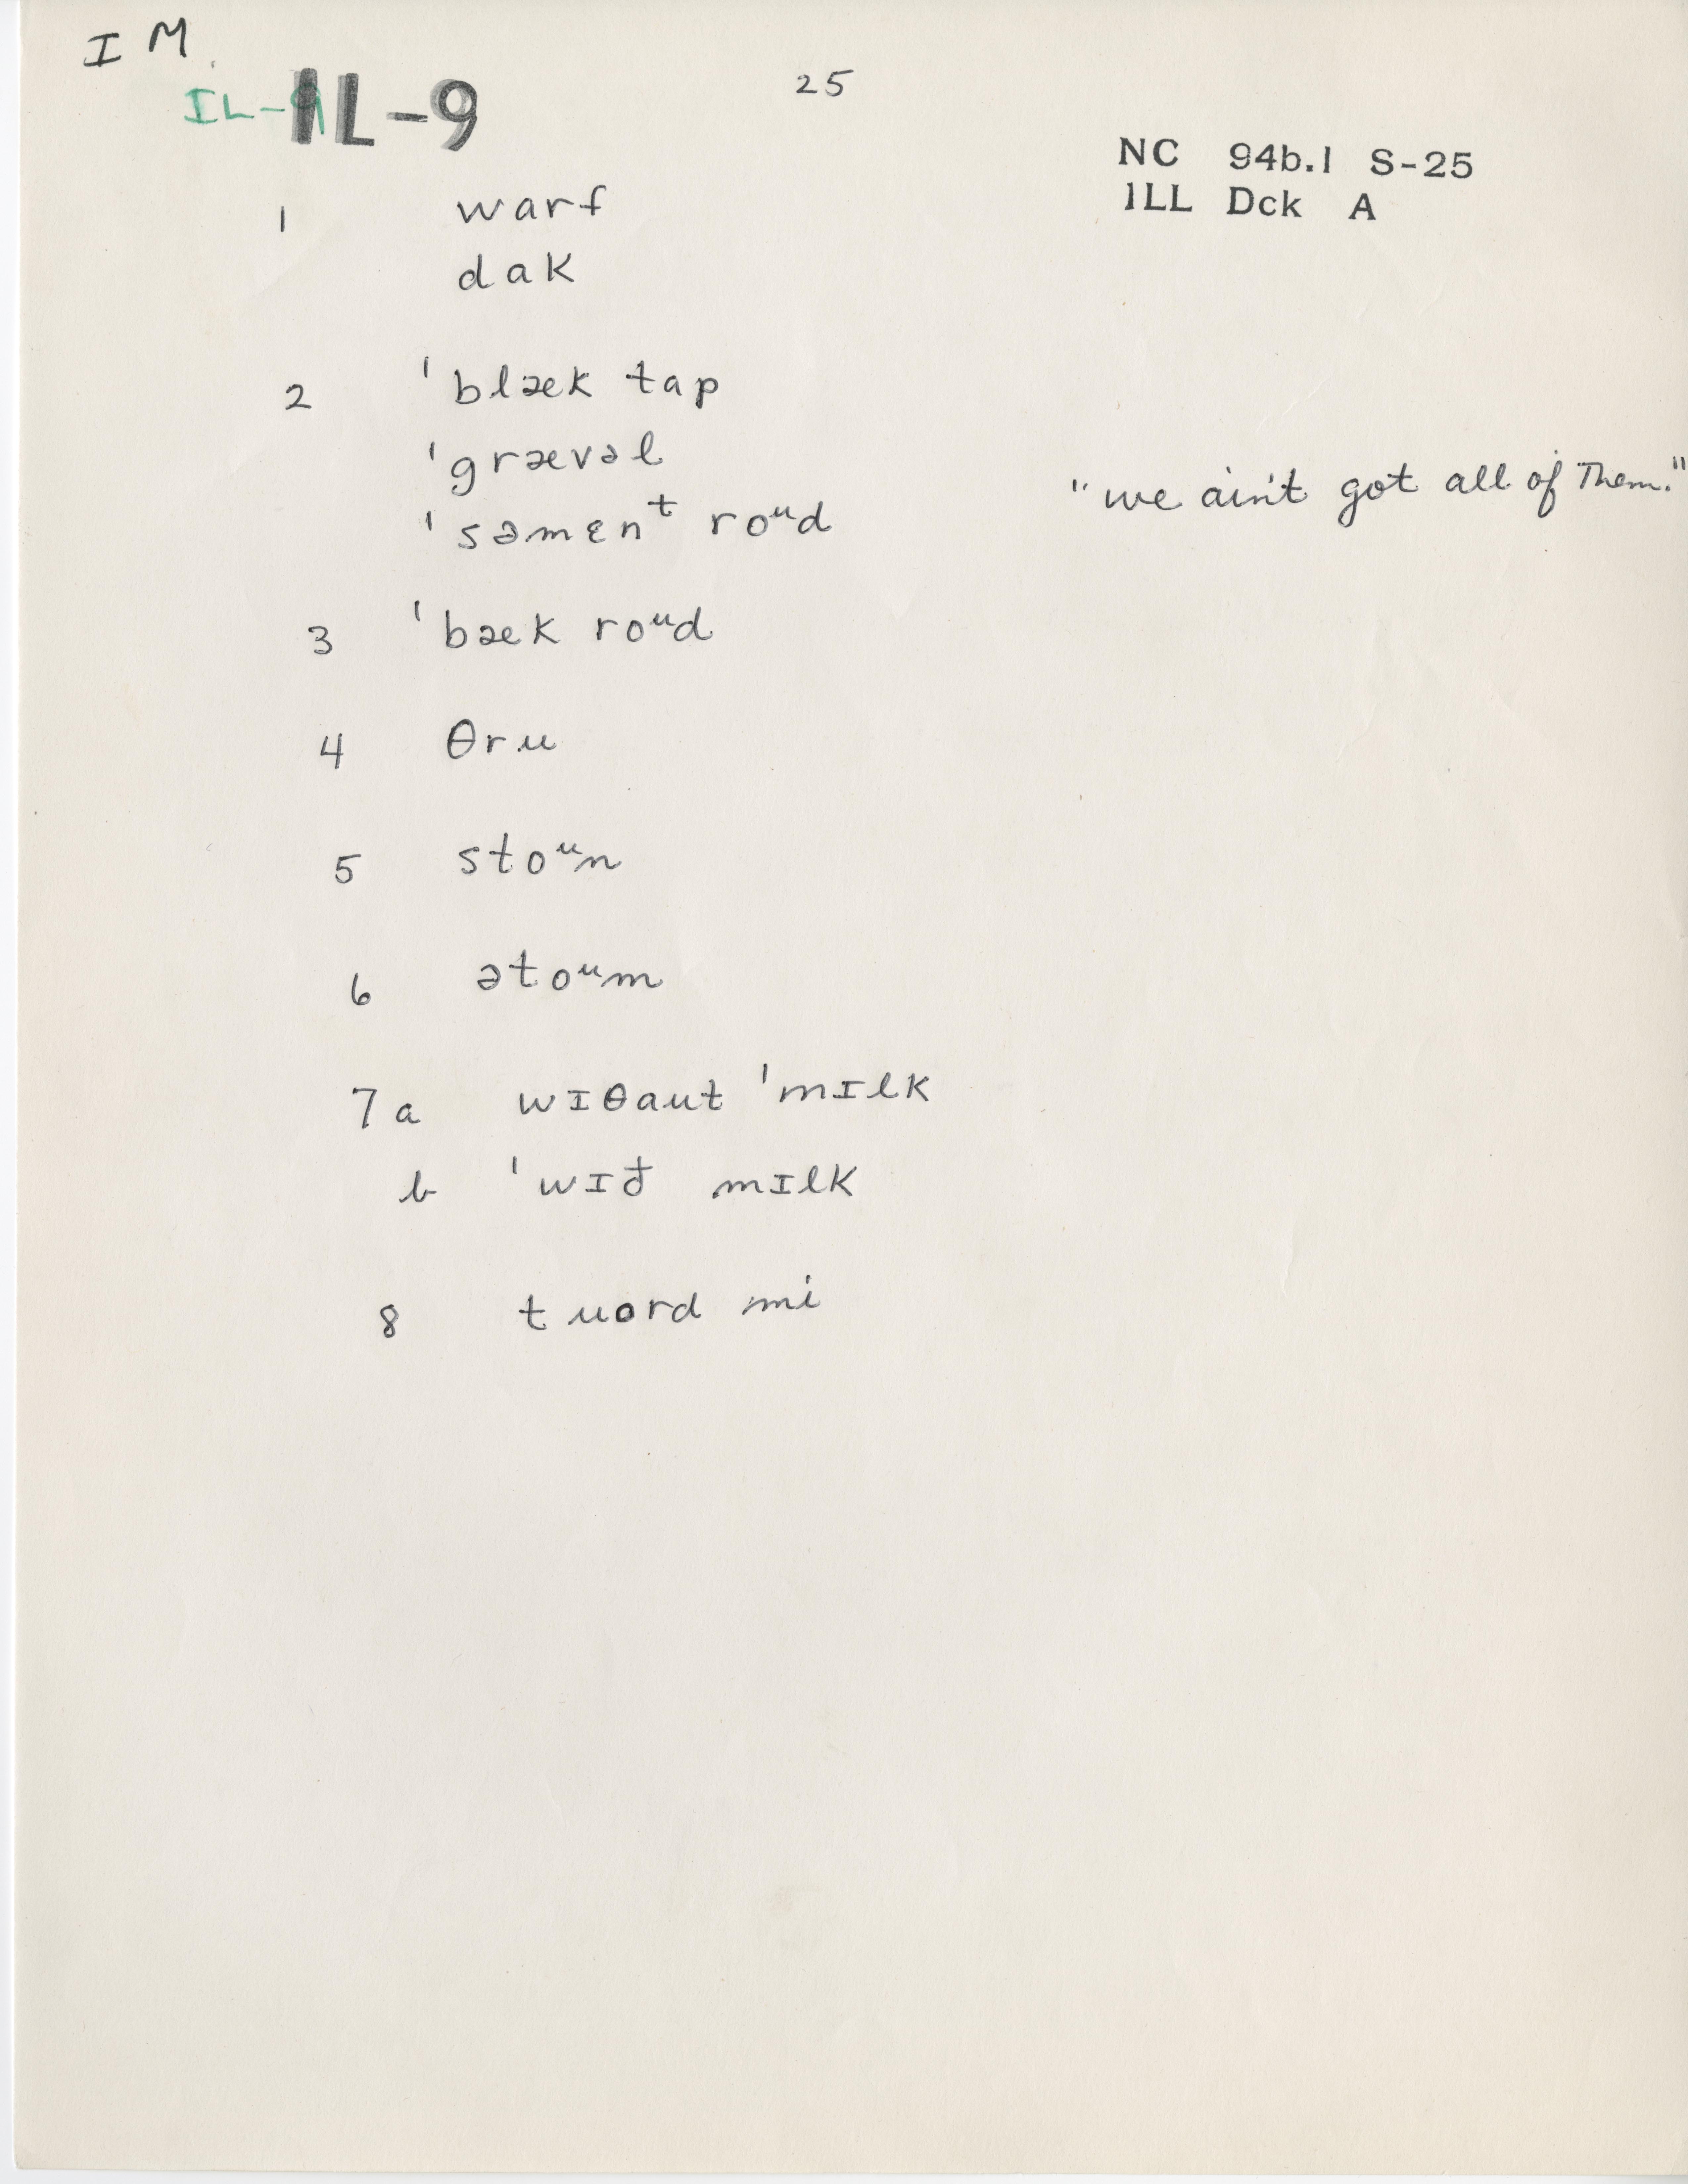 I M
IL-9 IL-9
25
NC 94b.1 S-25
ILL Dck A
1 warf
dak
2 ˈblæk tap
ˈgrævəl
ˈsəmɛnᵗ roᵘd
"we ain't got all of Them."
3 ˈbæk roᵘd
4 θru
5 stoᵘn
6 ətoᵘm
7a wɪθaut ˈmɪlk
b ˈwɪð mɪlk
8 tuord mi